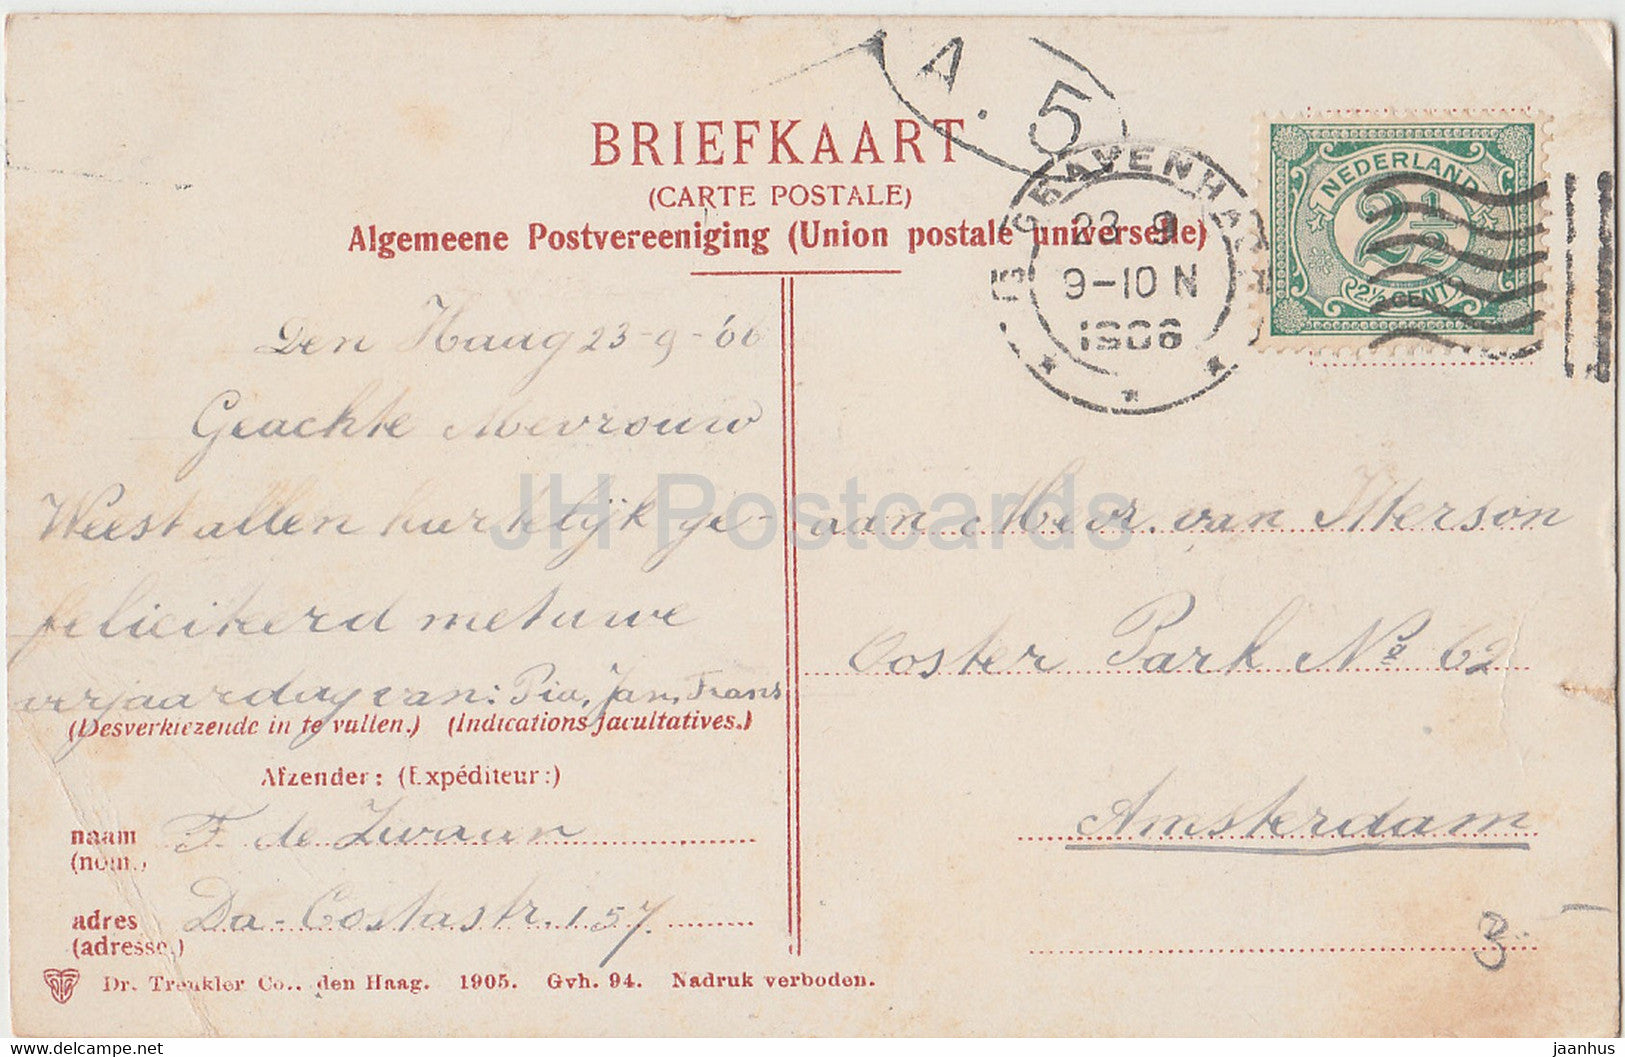 A. 5
BRIEFKAART
(CARTE POSTALE)
Algemeene Postvereeniging (Union postale universelle)
'S GRAVENHA
23 9
9-10 N
1906
NEDERLAND
2½
2½ CENT
Den Haag 23-9-'06
Geachte Mevrouw
Weest allen hartelijk ge-
feliciteerd met uwe
verjaardag van: Pia, Jan, Frans
(Desverkiezende in te vullen.) (Indications facultatives.)
Afzender: (Expéditeur:)
naam F. de Zwaan
(nom.)
adres Da-Costastr. 157.
(adresse.)
Dr. Trenkler Co., den Haag. 1905. Gvh. 94. Nadruk verboden.
aan Mevr. van Iterson
Ooster Park No 62
Amsterdam
3
JH Postcards
www.delcampe.net
jaanhus